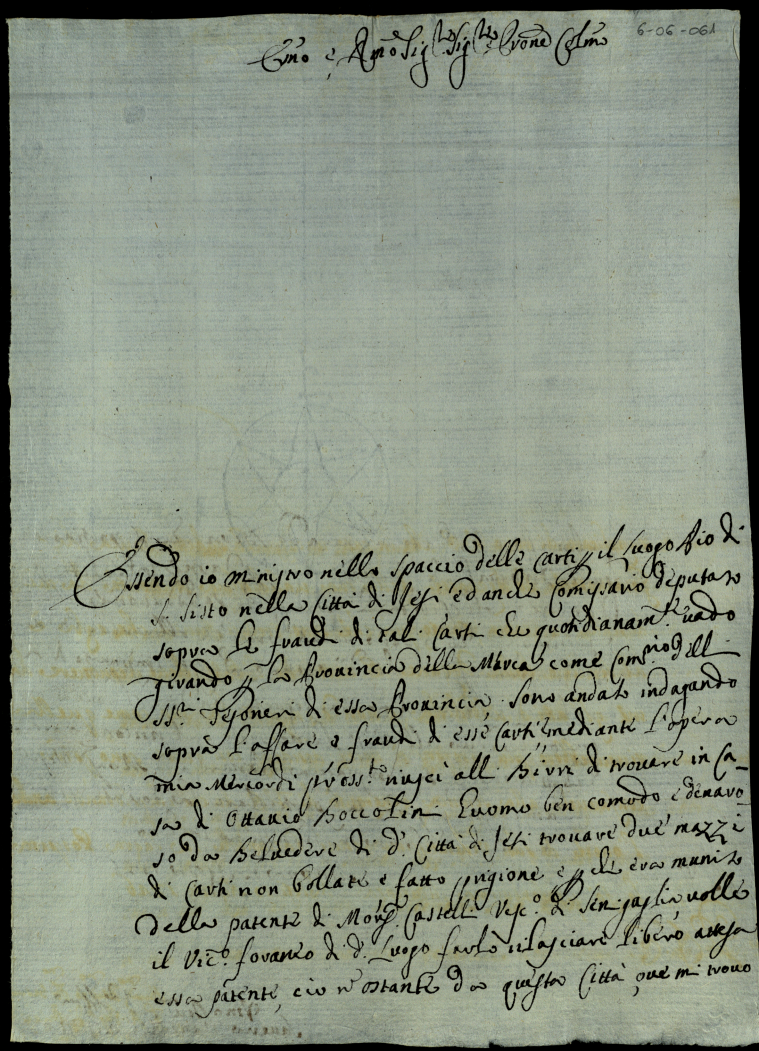 6-06-061
Em̃o e Rmõ Sig.re Sig.re e Pron͠e Col͠mo
Essendo io ministro nello spaccio delle Carti p il luogo Pio di
S. Sisto nella Città di Jesi ed anche Comissario deputato
sopra le fraudi di tali Carti che quotidianam.te vado
girando p la Provincia della Marca, come Com.rio dell
SS.ri Tesorieri di essa Provincia. Sono andato indagando
sopra l'affare e fraudi di esse Carti, e mediante l'opera
mia Mercordi pross.to riuscì alli Birri di trovare in Ca-
sa di Ottavio Boccolini Euomo ben comodo e denaro-
so da Belvedere di d.a Città di Jesi trovare due mazzi
di Carti non bollate e fatto prigione e p che era munito
della patente di Mons.r Castelli Vesc.o di Senigaglia, volle
il Vic.o foraneo di d.o Luogo farlo rilasciare libero attesa
essa patente, ciò n ostante da questa Città, ove mi trovo